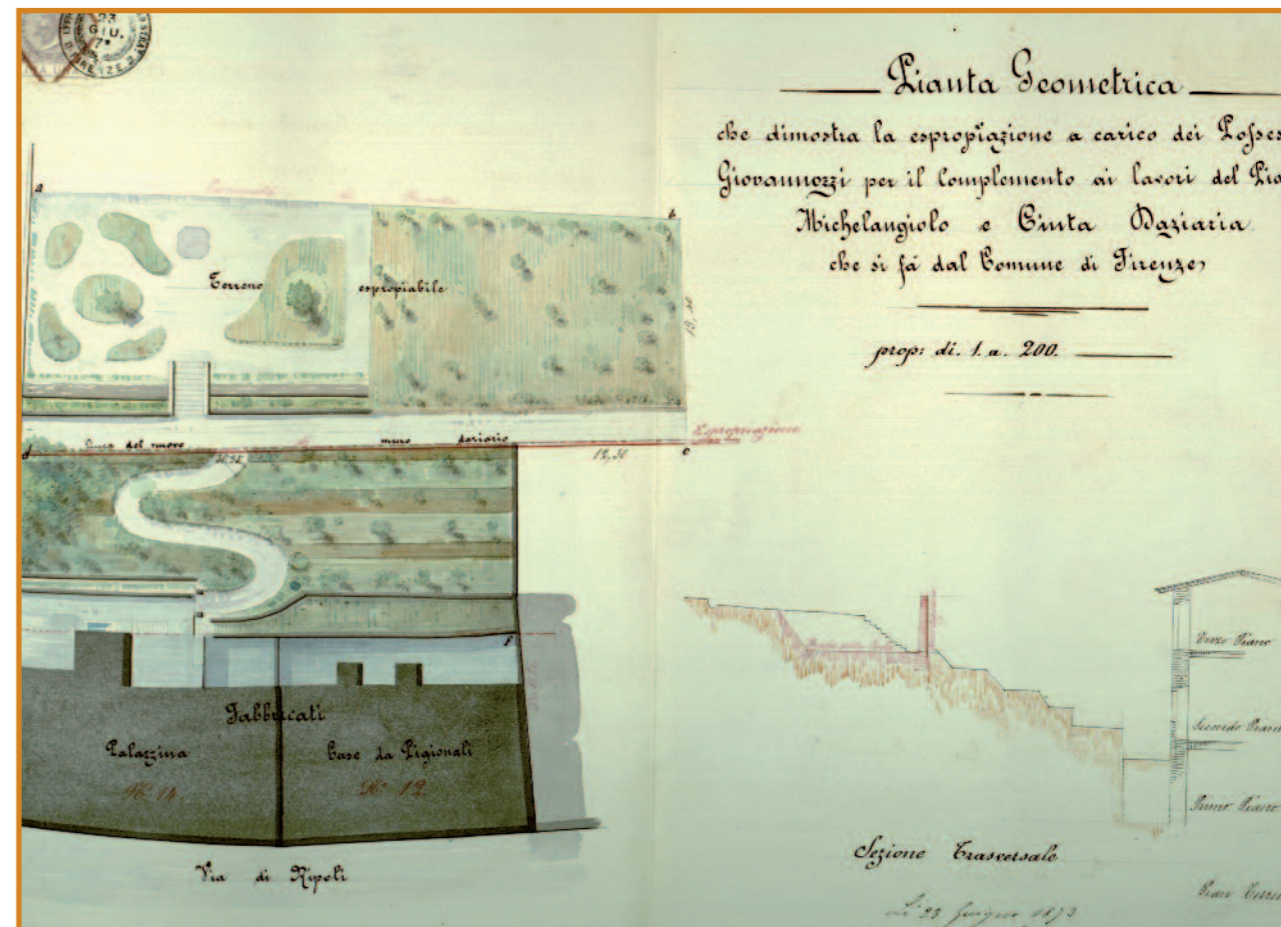 23
GIU.
FIRENZE
Pianta Geometrica
che dimostra la espropiazione a carico dei Posses
Giovannozzi per il Complemento ai lavori del Pia
Michelangiolo e Cinta Daziaria
che si fá dal Comune di Firenze
prop: di. 1. a. 200.
Terreno espropiabile
Espropriazione
Linea del nuovo muro daziario
12,30
c
F
Fabbricati
Palazzina
Case da Pigionali
N.º 14
N.º 12
Via di Ripoli
Terzo Piano
Secondo Piano
Primo Piano
Sezione Trasversale
Piano Terren
Li 23 Giugno 1873